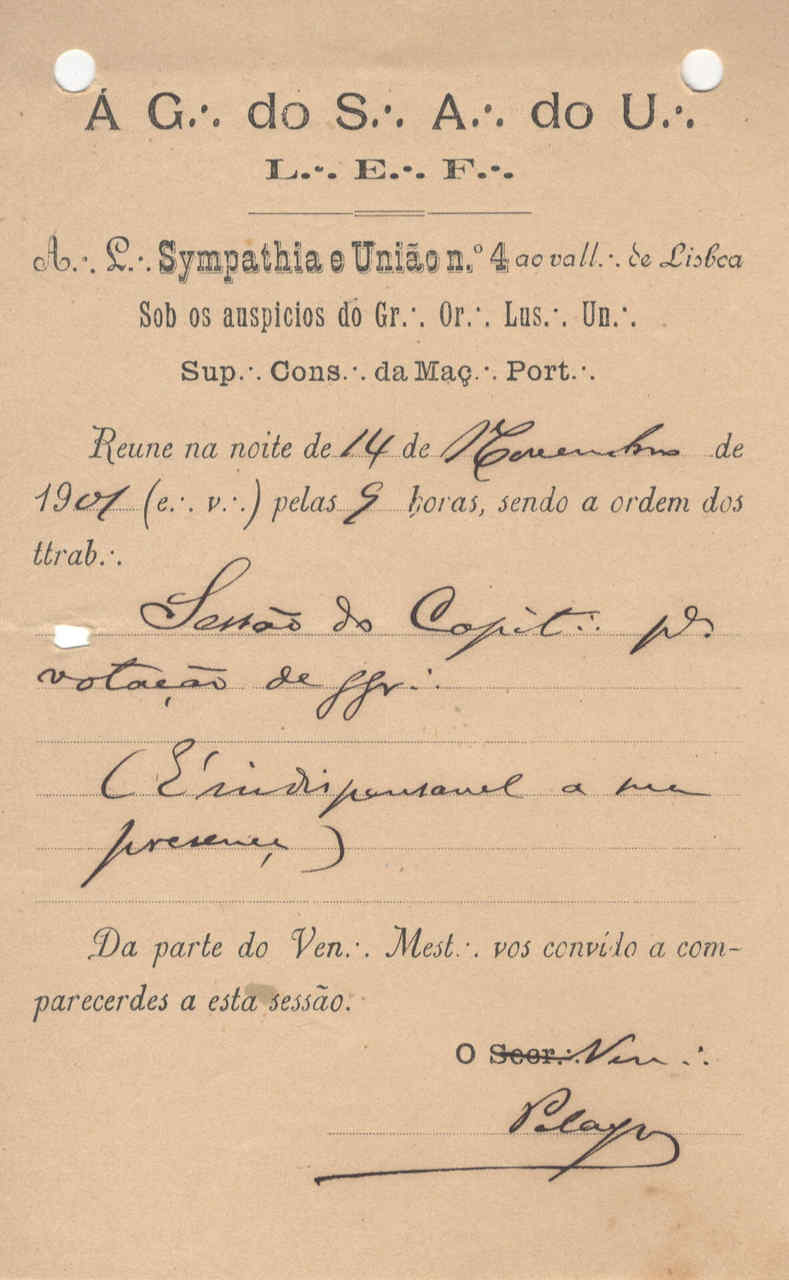 Á G∴ do S∴ A∴ do U∴
L∴ E∴ F∴
A∴ L∴ Sympathia e União n.º 4 ao vall∴ de Lisboa
Sob os auspicios do Gr∴ Or∴ Lus∴ Un∴
Sup∴ Cons∴ da Maç∴ Port∴
Reune na noite de 14 de Novembro de
1901 (e∴ v∴) pelas 9 horas, sendo a ordem dos
ttrab∴
Sessão do Capit∴ pª
votação de ggr∴
(É indispensavel a sua
presença)
Da parte do Ven∴ Mest∴ vos convído a com-
parecerdes a esta sessão.
O Secr∴ Ven∴
Pelayo